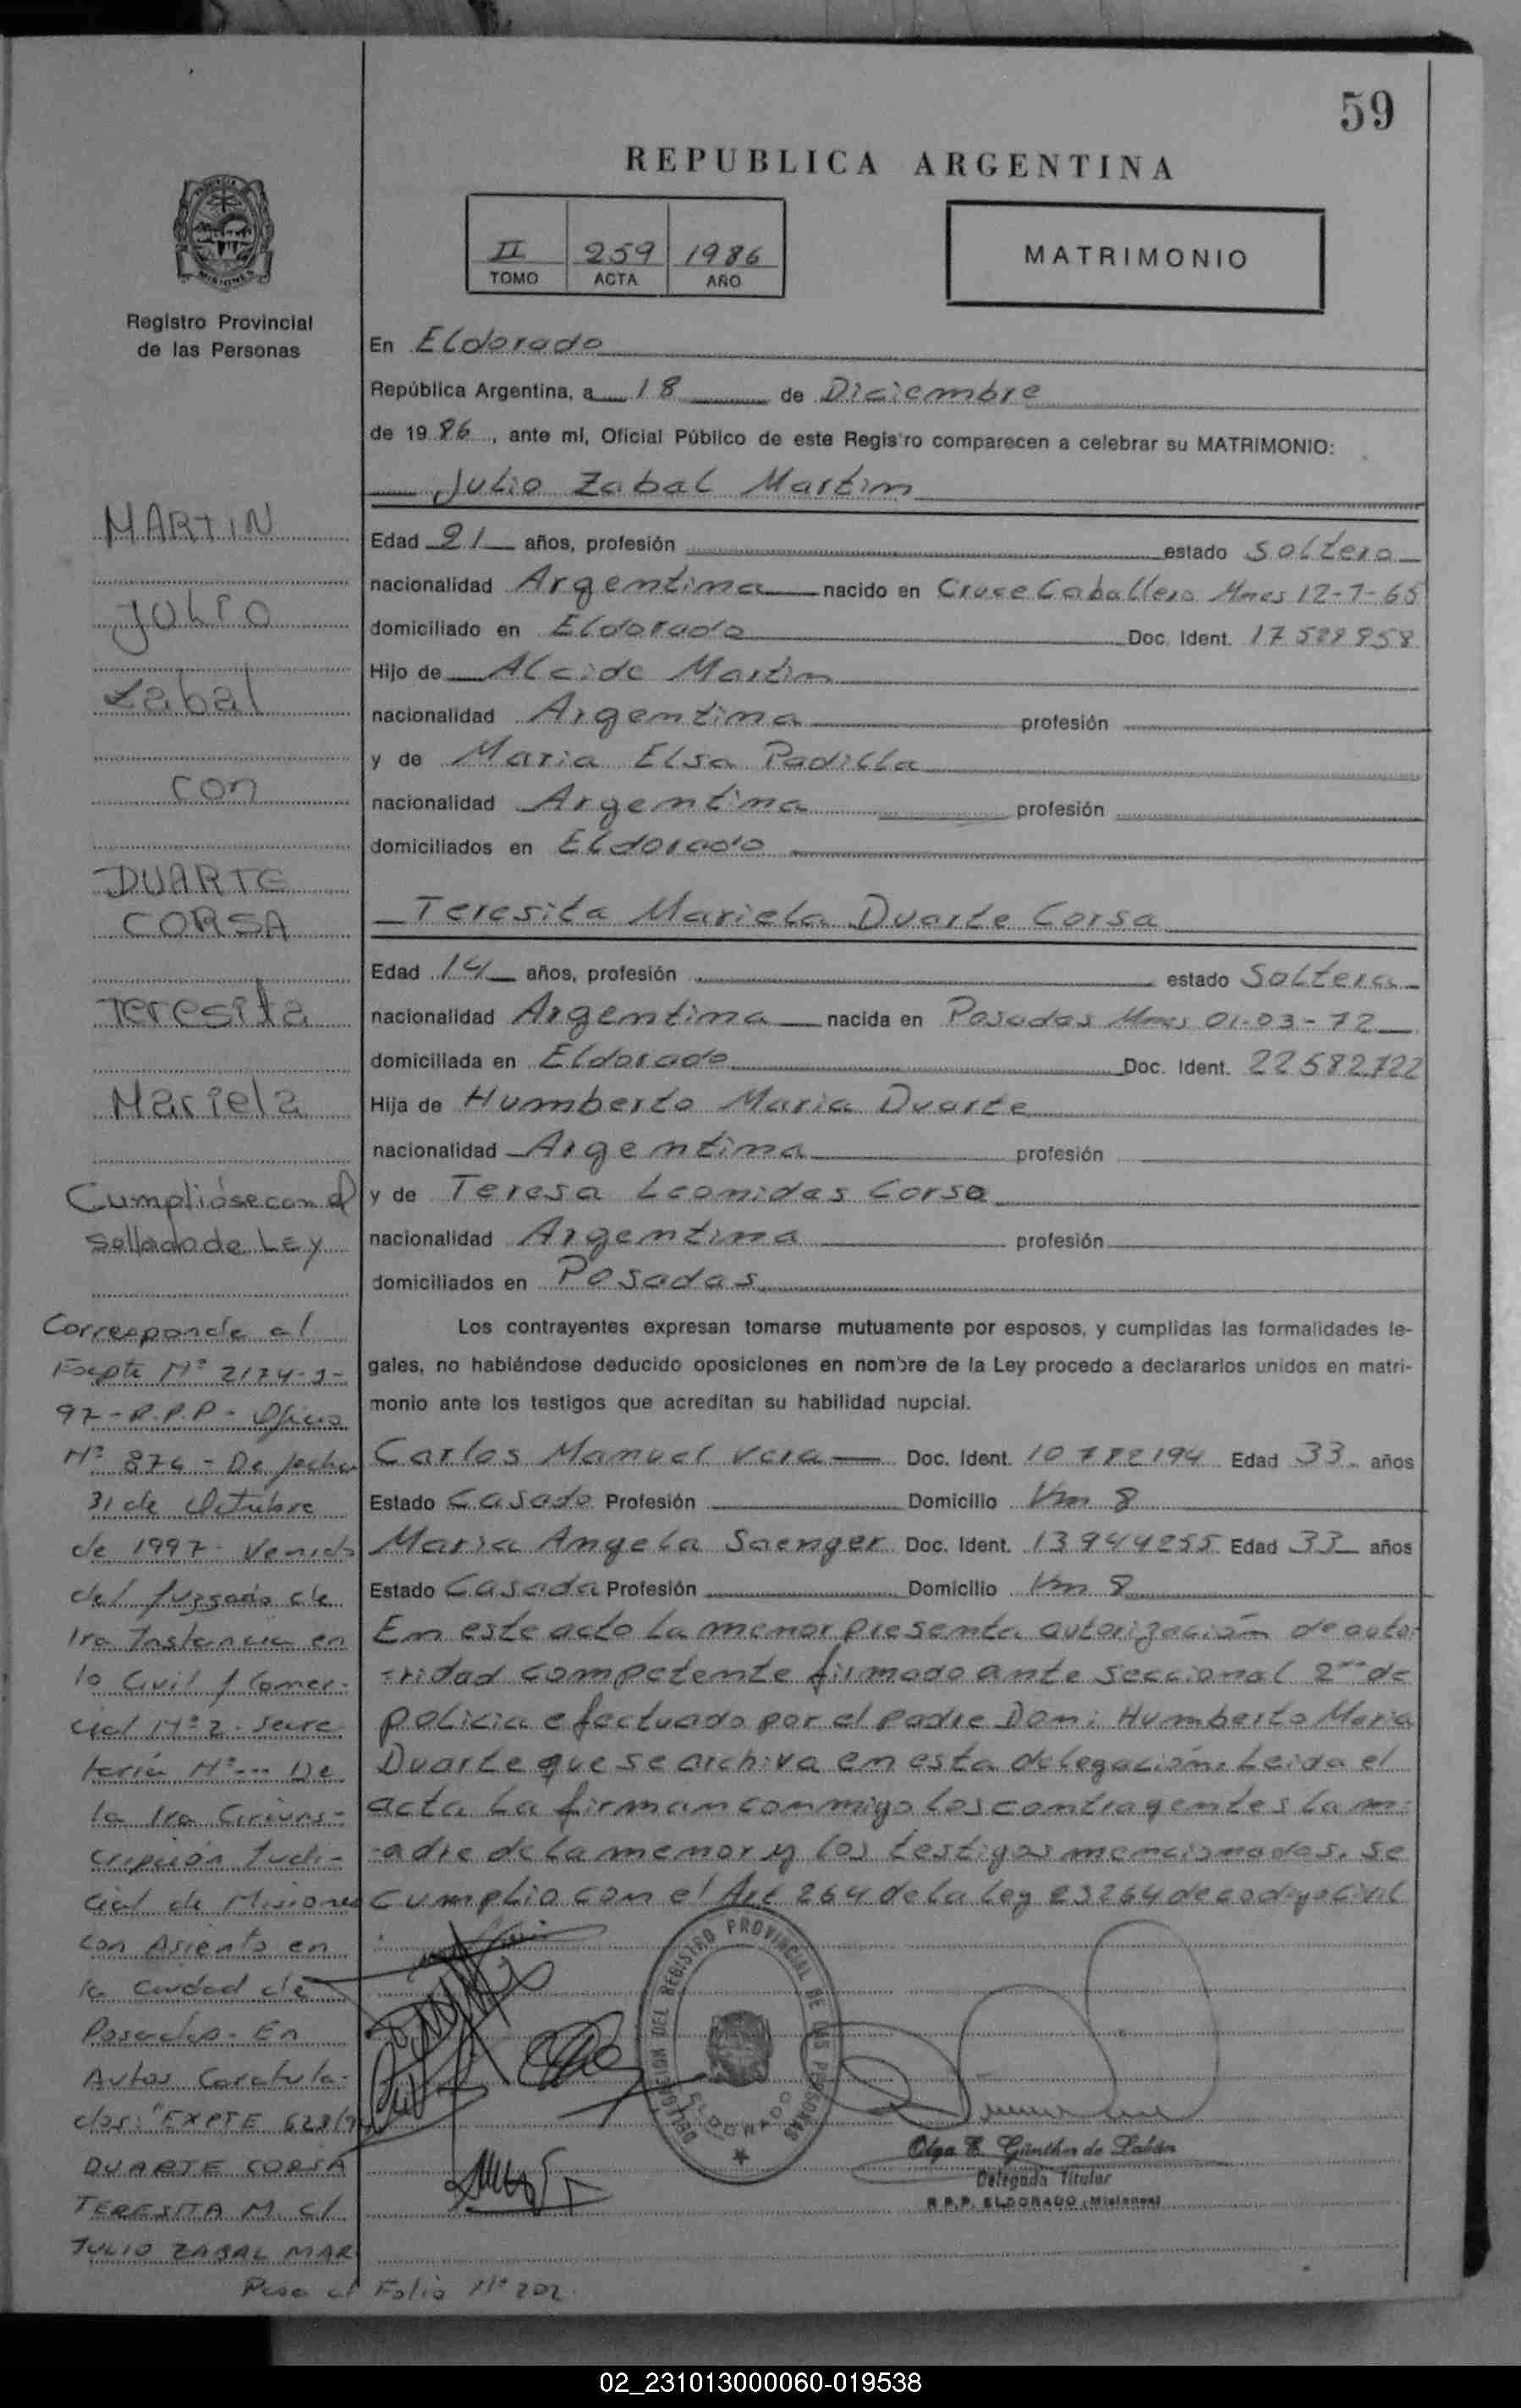 59
REPUBLICA ARGENTINA
II 259 1986
TOMO ACTA AÑO
MATRIMONIO
MISIONES
Registro Provincial
de las Personas
En Eldorado
República Argentina, a 18 de Diciembre
de 1986, ante mí, Oficial Público de este Regis ro comparecen a celebrar su MATRIMONIO:
Julio Zabal Martin
Edad 21 años, profesión estado Soltero
nacionalidad Argentina nacido en Cruce Caballero Mnes 12-7-65
domiciliado en Eldorado Doc. Ident.
Hijo de Alcide Martin
nacionalidad Argentina profesión
y de Maria Elsa Padilla
nacionalidad Argentina profesión
domiciliados en Eldorado
Teresita Mariela Duarte Corsa
Edad 14 años, profesión estado Soltera
nacionalidad Argentina nacida en Posadas Mnes 01-03-72
domiciliada en Eldorado Doc. Ident. 22582722
Hija de Humberto Maria Duarte
nacionalidad Argentina profesión
y de Teresa Leonidas Corsa
nacionalidad Argentina profesión
domiciliados en Posadas
Los contrayentes expresan tomarse mutuamente por esposos, y cumplidas las formalidades le-
gales, no habiéndose deducido oposiciones en nombre de la Ley procedo a declararlos unidos en matri-
monio ante los testigos que acreditan su habilidad nupcial.
Carlos Manuel Vera Doc. Ident. Edad 33 años
Estado Casado Profesión Domicilio Km 8
Maria Angela Saenger Doc. Ident. 13944255 Edad 33 años
Estado Casada Profesión Domicilio Km 8
En este acto la menor presenta autorización de auto-
-ridad competente firmado ante seccional 2da de
policia efectuado por el padre Don: Humberto Maria
Duarte que se archiva en esta delegación. Leida el
acta la firman conmigo los contragentes la m-
-adre de la menor y los testigos mencionados. se
cumplio con el Art 264 de la Ley 23264 de codigo Civil
MARTIN
JULIO
Zabal
con
DUARTE
CORSA
Teresita
Mariela
Cumplióse con el
Sellado de LEY
Corresponde al
Expte Nº 2174-J-
97-R.P.P- Oficio
Nº 874 - De fecha
31 de Octubre
de 1997- Venido
del Juzgado de
1ra Instancia en
lo Civil y Comer-
cial Nº 2. Secre
taria Nº--- De
la 1ra Circuns-
cripción Judi-
cial de Misiones
con Asiento en
la Ciudad de
Posadas- En
Autos Caratula-
dos: "EXPTE 628/9
DUARTE CORSA
TERESITA M. C/
JULIO ZABAL MAR
Pasa al Folio Nº 202
DELEGACION DEL REGISTRO PROVINCIAL DE LAS PERSONAS
ELDORADO
Olga E. Günther de
Delegada Titular
R.P.P. ELDORADO (Misiones)
02_231013000060-019538